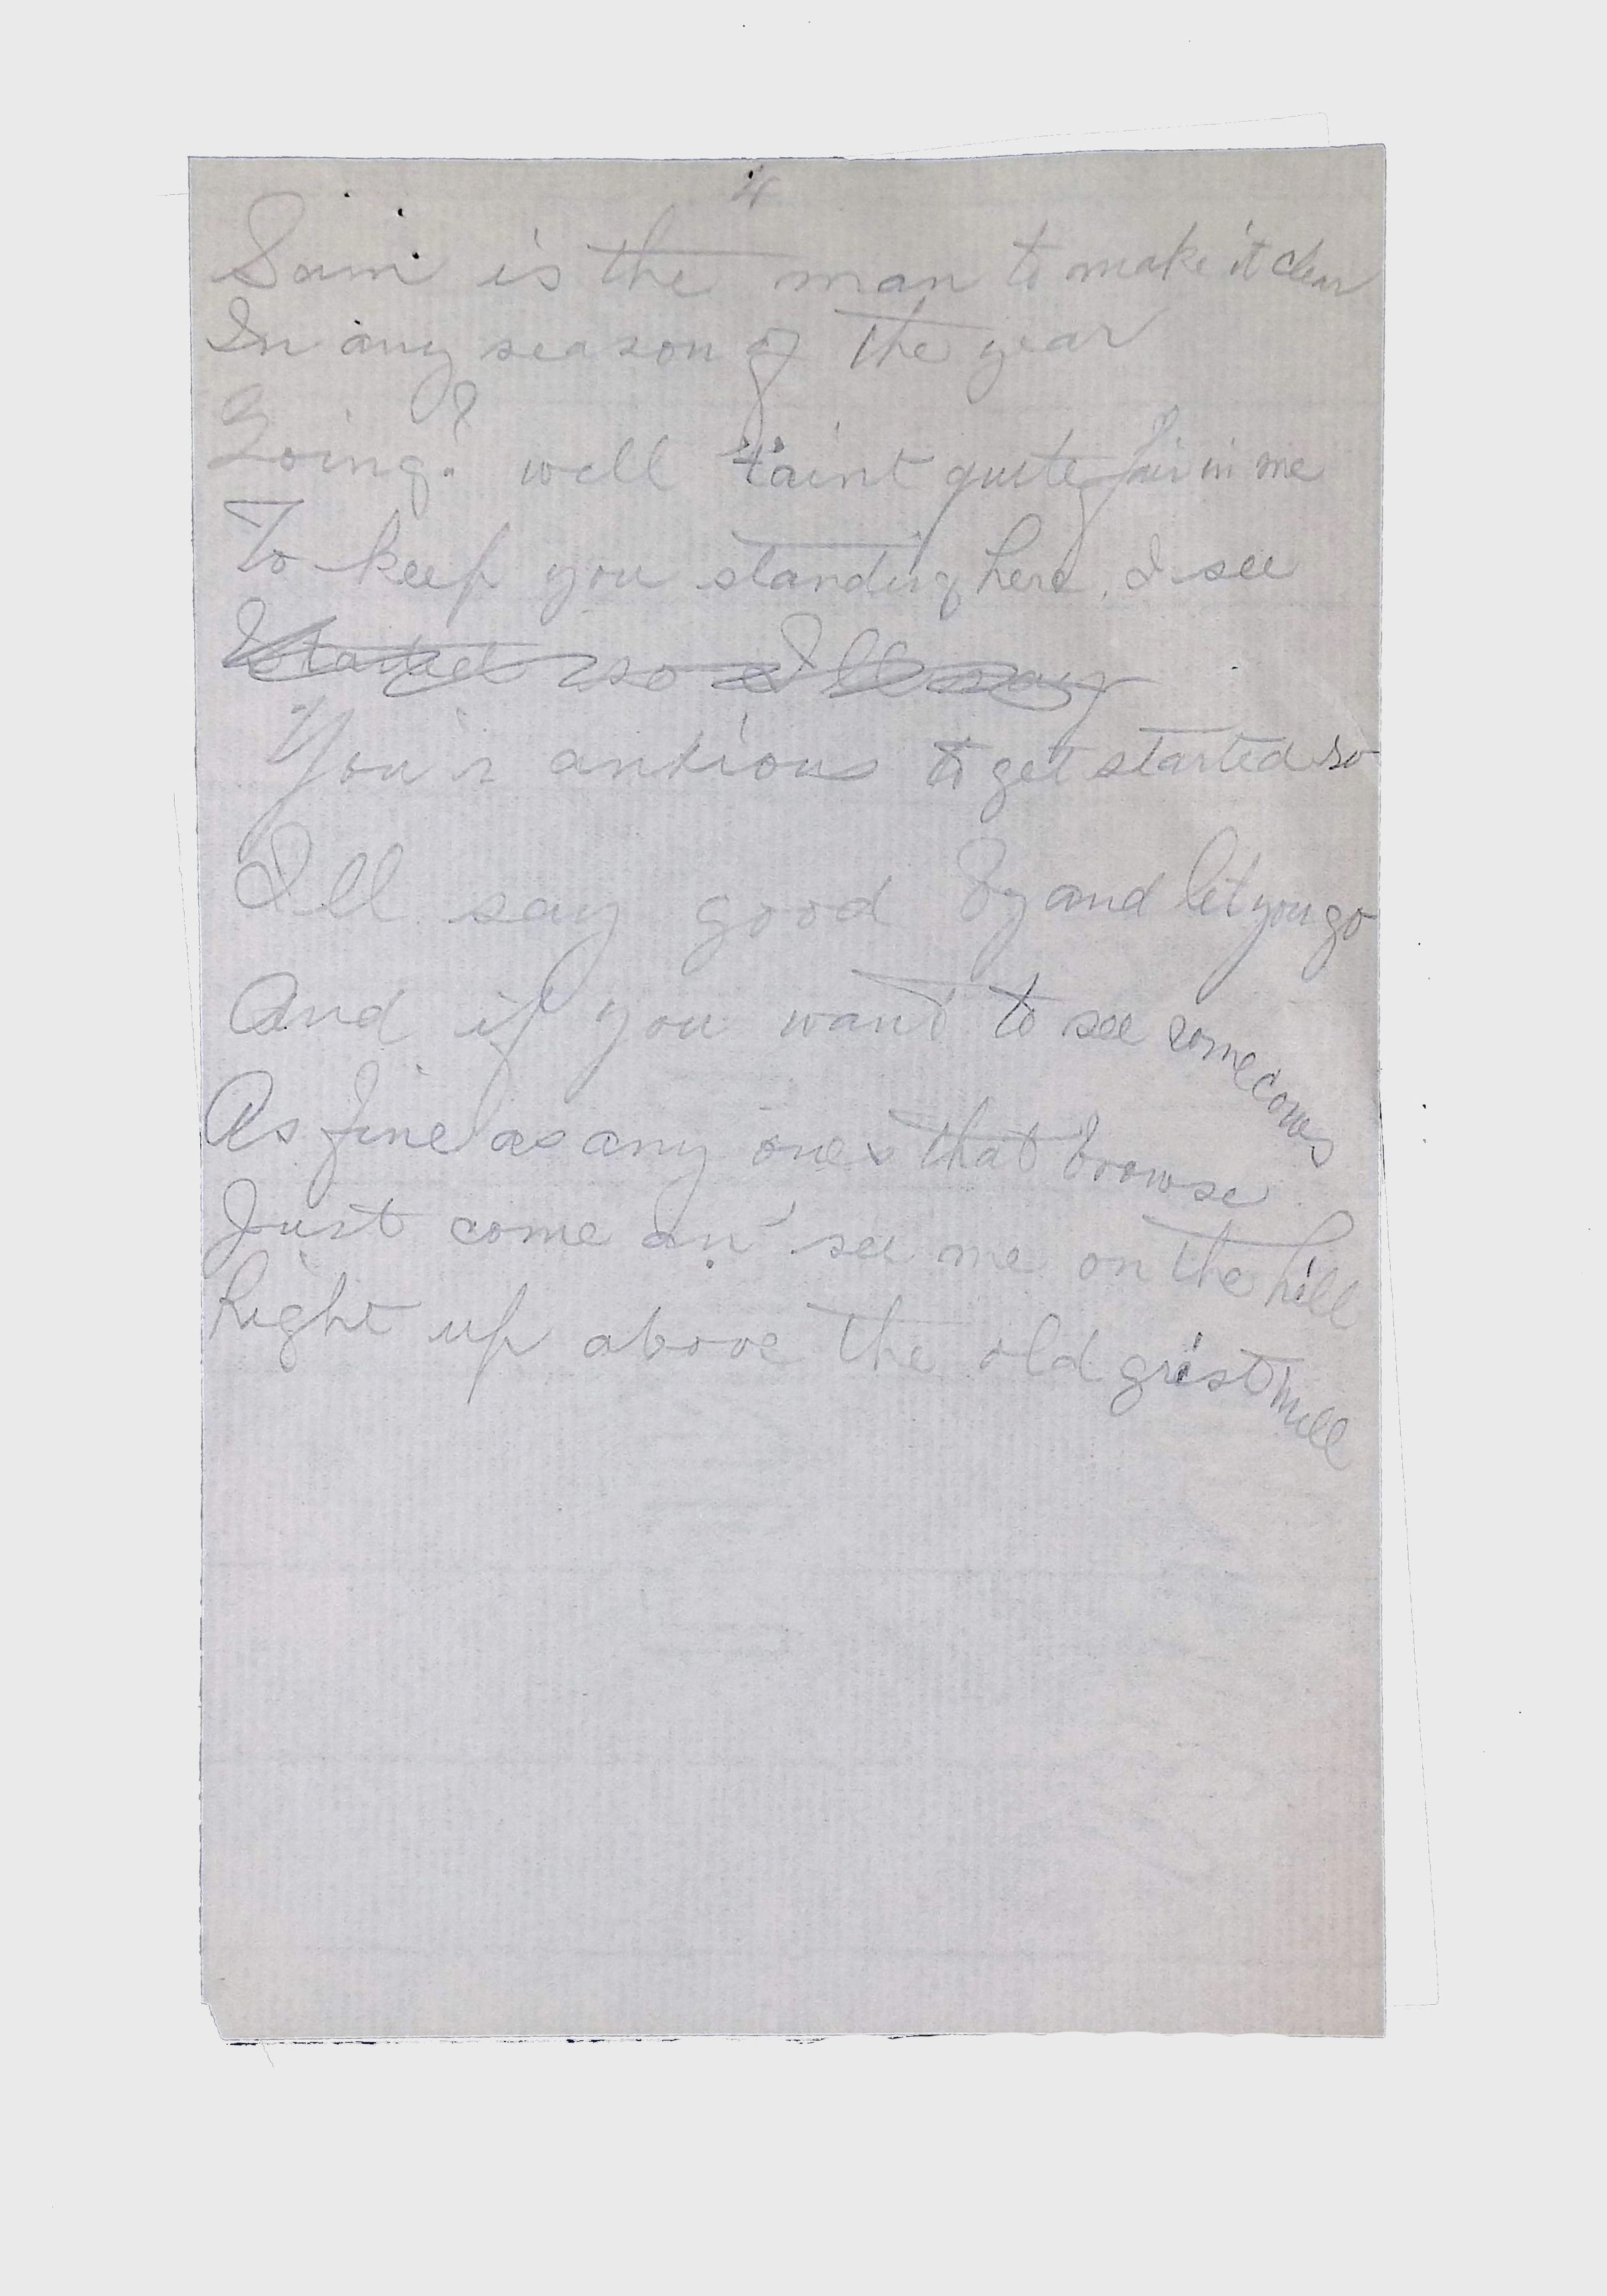 4
Sam is the man to make it clear
In any season of the year
Going? well 'taint quite fair in me
To keep you standing here, I see
Started so I'll say
You'r anxious to get started so
I'll say good by and let you go
And if you want to see some cows
As fine as any ones that browse
Just come an' see me on the hill
Right up above the old grist mill